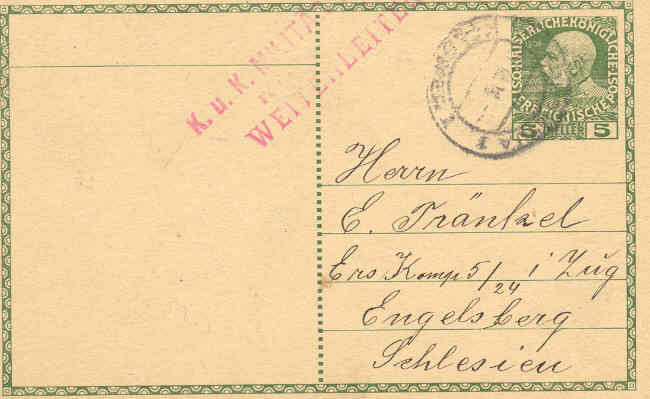 K. u. K. MILITÄ
WEITERLEITE
KAISERLICHE KÖNIGLICHE
ÖSTERREICHISCHE POST
5 HELLER 5
Herrn
E. Tränkel
Ers Komp 5/24 i Zug
Engelsberg
Schlesien